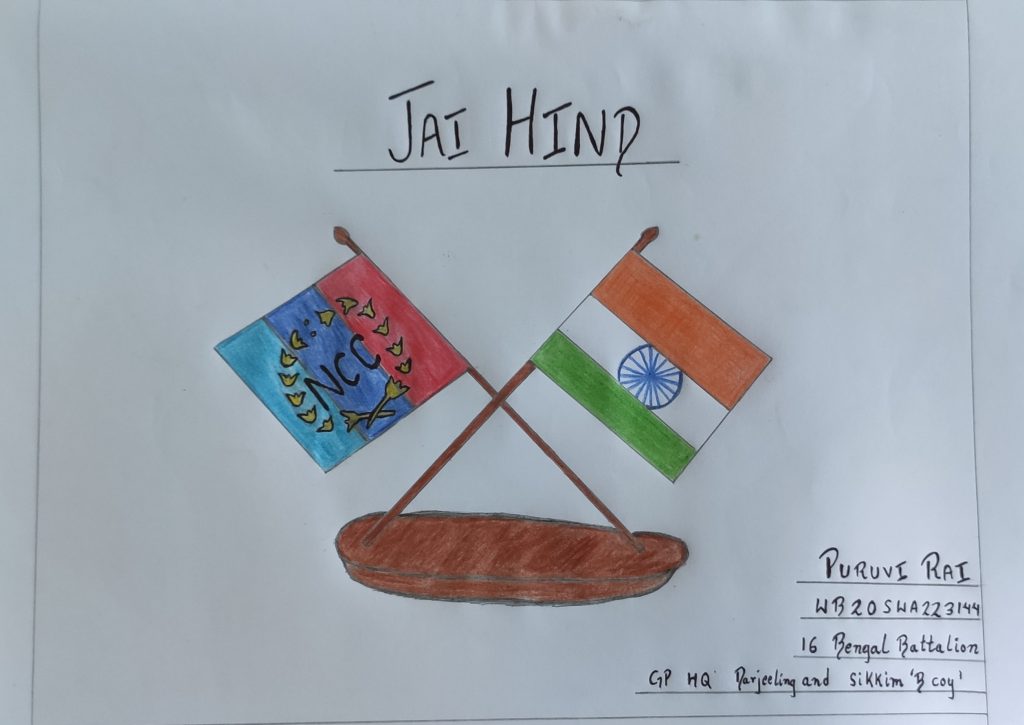 JAI HIND
NCC
PURUVI RAI
WB20SWA223144
16 Bengal Battalion
GP HQ Darjeeling and Sikkim 'B coy'